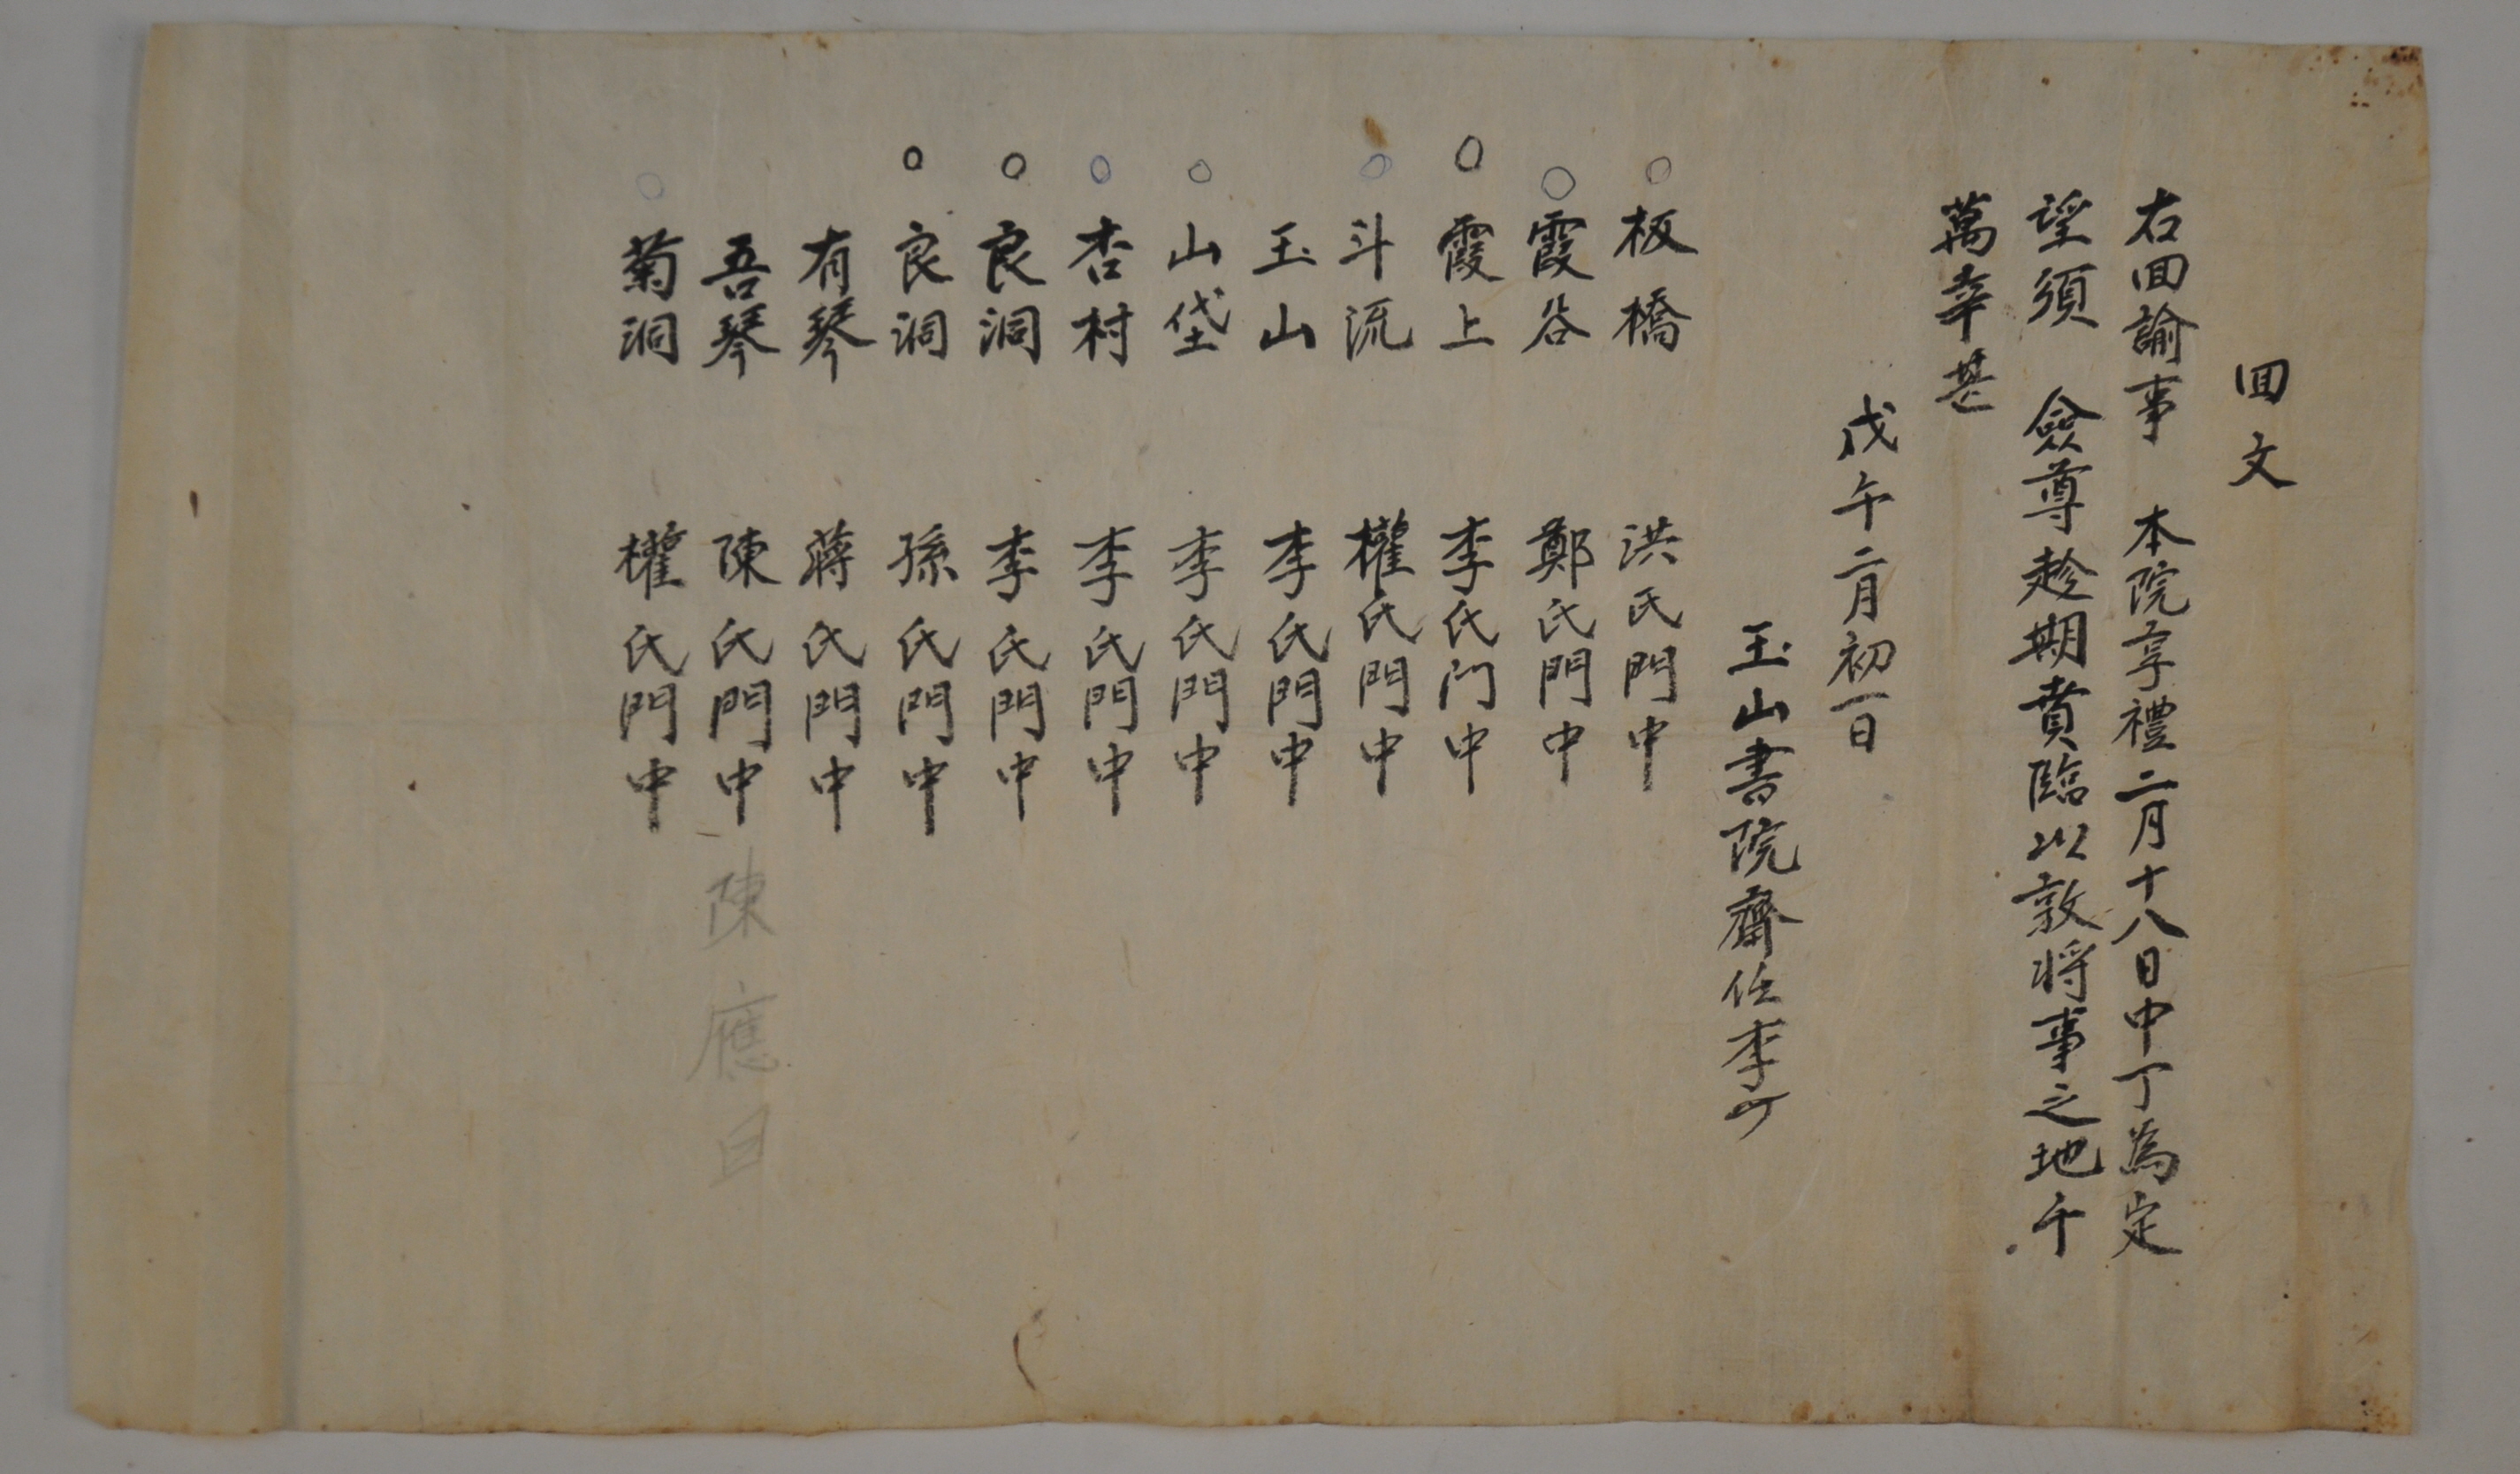 回文
右回諭事 本院享禮二月十八日中丁為定
望須 僉尊趁期賁臨以敦將事之地千
萬幸甚
戊午二月初一日
玉山書院齋任李
板橋 洪氏門中
霞谷 鄭氏門中
霞上 李氏门中
斗流 權氏門中
玉山 李氏門中
山垈 李氏門中
杏村 李氏門中
良洞 李氏門中
良洞 孫氏門中
有琴 蔣氏門中
吾琴 陳氏門中 陳應
菊洞 權氏門中